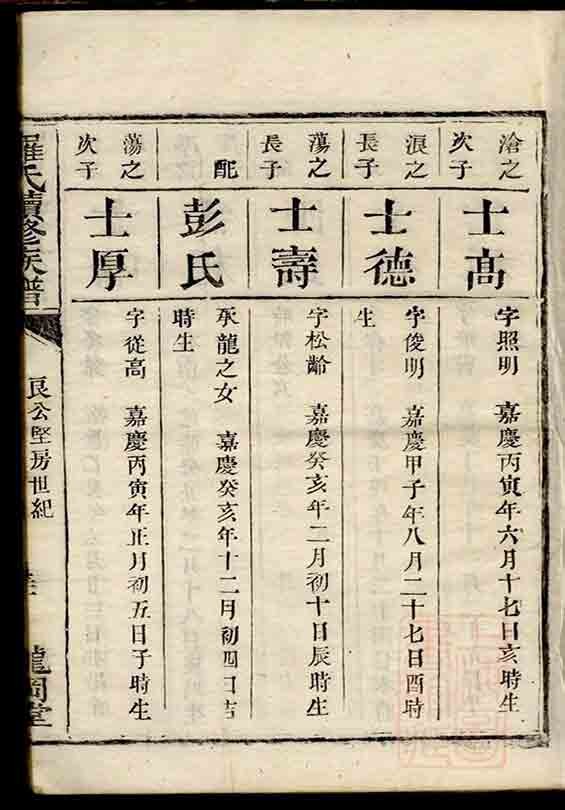 滄之
次子
士高
字照明　嘉慶丙寅年六月十七日亥時生
浪之
長子
士德
字俊明　嘉慶甲子年八月二十七日酉時
生
蕩之
長子
士壽
字松齡　嘉慶癸亥年二月初十日辰時生
配
彭氏
承龍之女　嘉慶癸亥年十二月初四日吉
時生
蕩之
次子
士厚
字從高　嘉慶丙寅年正月初五日子時生
羅氏續修族譜
良公堅房世紀
龍岡堂